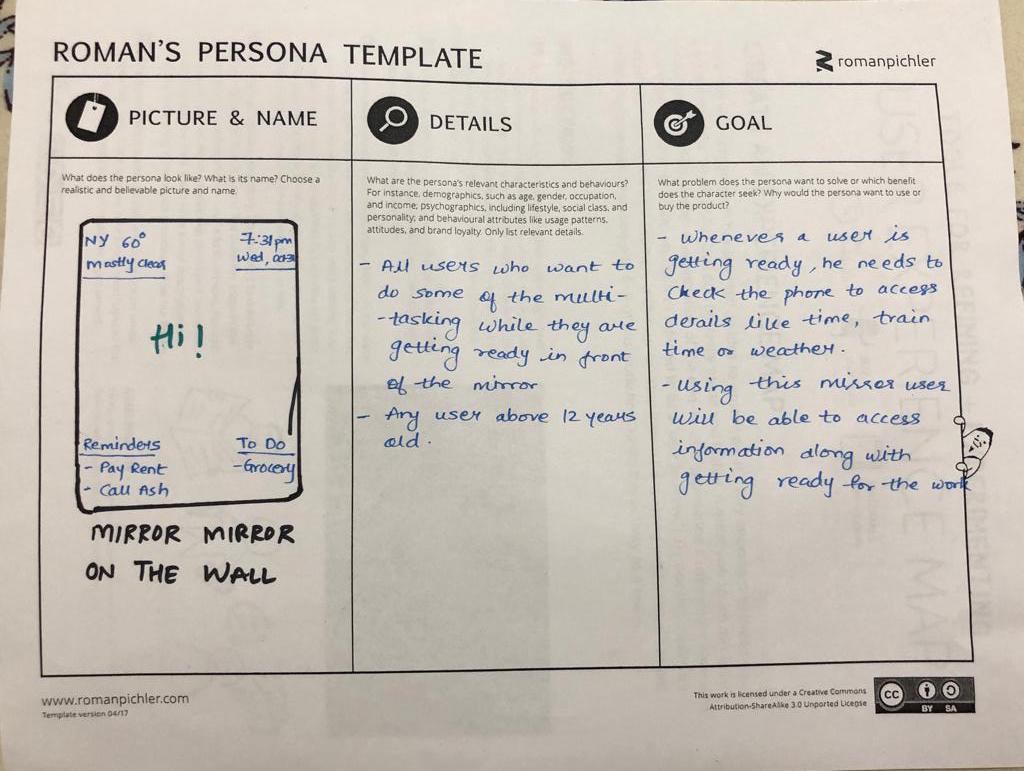 ROMAN'S PERSONA TEMPLATE
romanpichler
PICTURE & NAME
What does the persona look like? What is its name? Choose a
realistic and believable picture and name.
NY 60°
Mostly Clear
7:31pm
Wed,
Hi!
Reminders
- Pay Rent
- Call Ash
To Do
- Grocery
MIRROR MIRROR
ON THE WALL
DETAILS
What are the persona's relevant characteristics and behaviours?
For instance, demographics, such as age, gender, occupation,
and income; psychographics, including lifestyle, social class, and
personality; and behavioural attributes like usage patterns,
attitudes, and brand loyalty. Only list relevant details.
- All users who want to
do some of the multi-
-tasking while they are
getting ready in front
of the mirror
- Any user above 12 years
old.
GOAL
What problem does the persona want to solve or which benefit
does the character seek? Why would the persona want to use or
buy the product?
- Whenever a user is
getting ready, he needs to
check the phone to access
details like time, train
time or weather.
- Using this mirror user
will be able to access
information along with
getting ready for the work
www.romanpichler.com
Template version 04/17
This work is licensed under a Creative Commons
Attribution-ShareAlike 3.0 Unported License
CC
BY SA